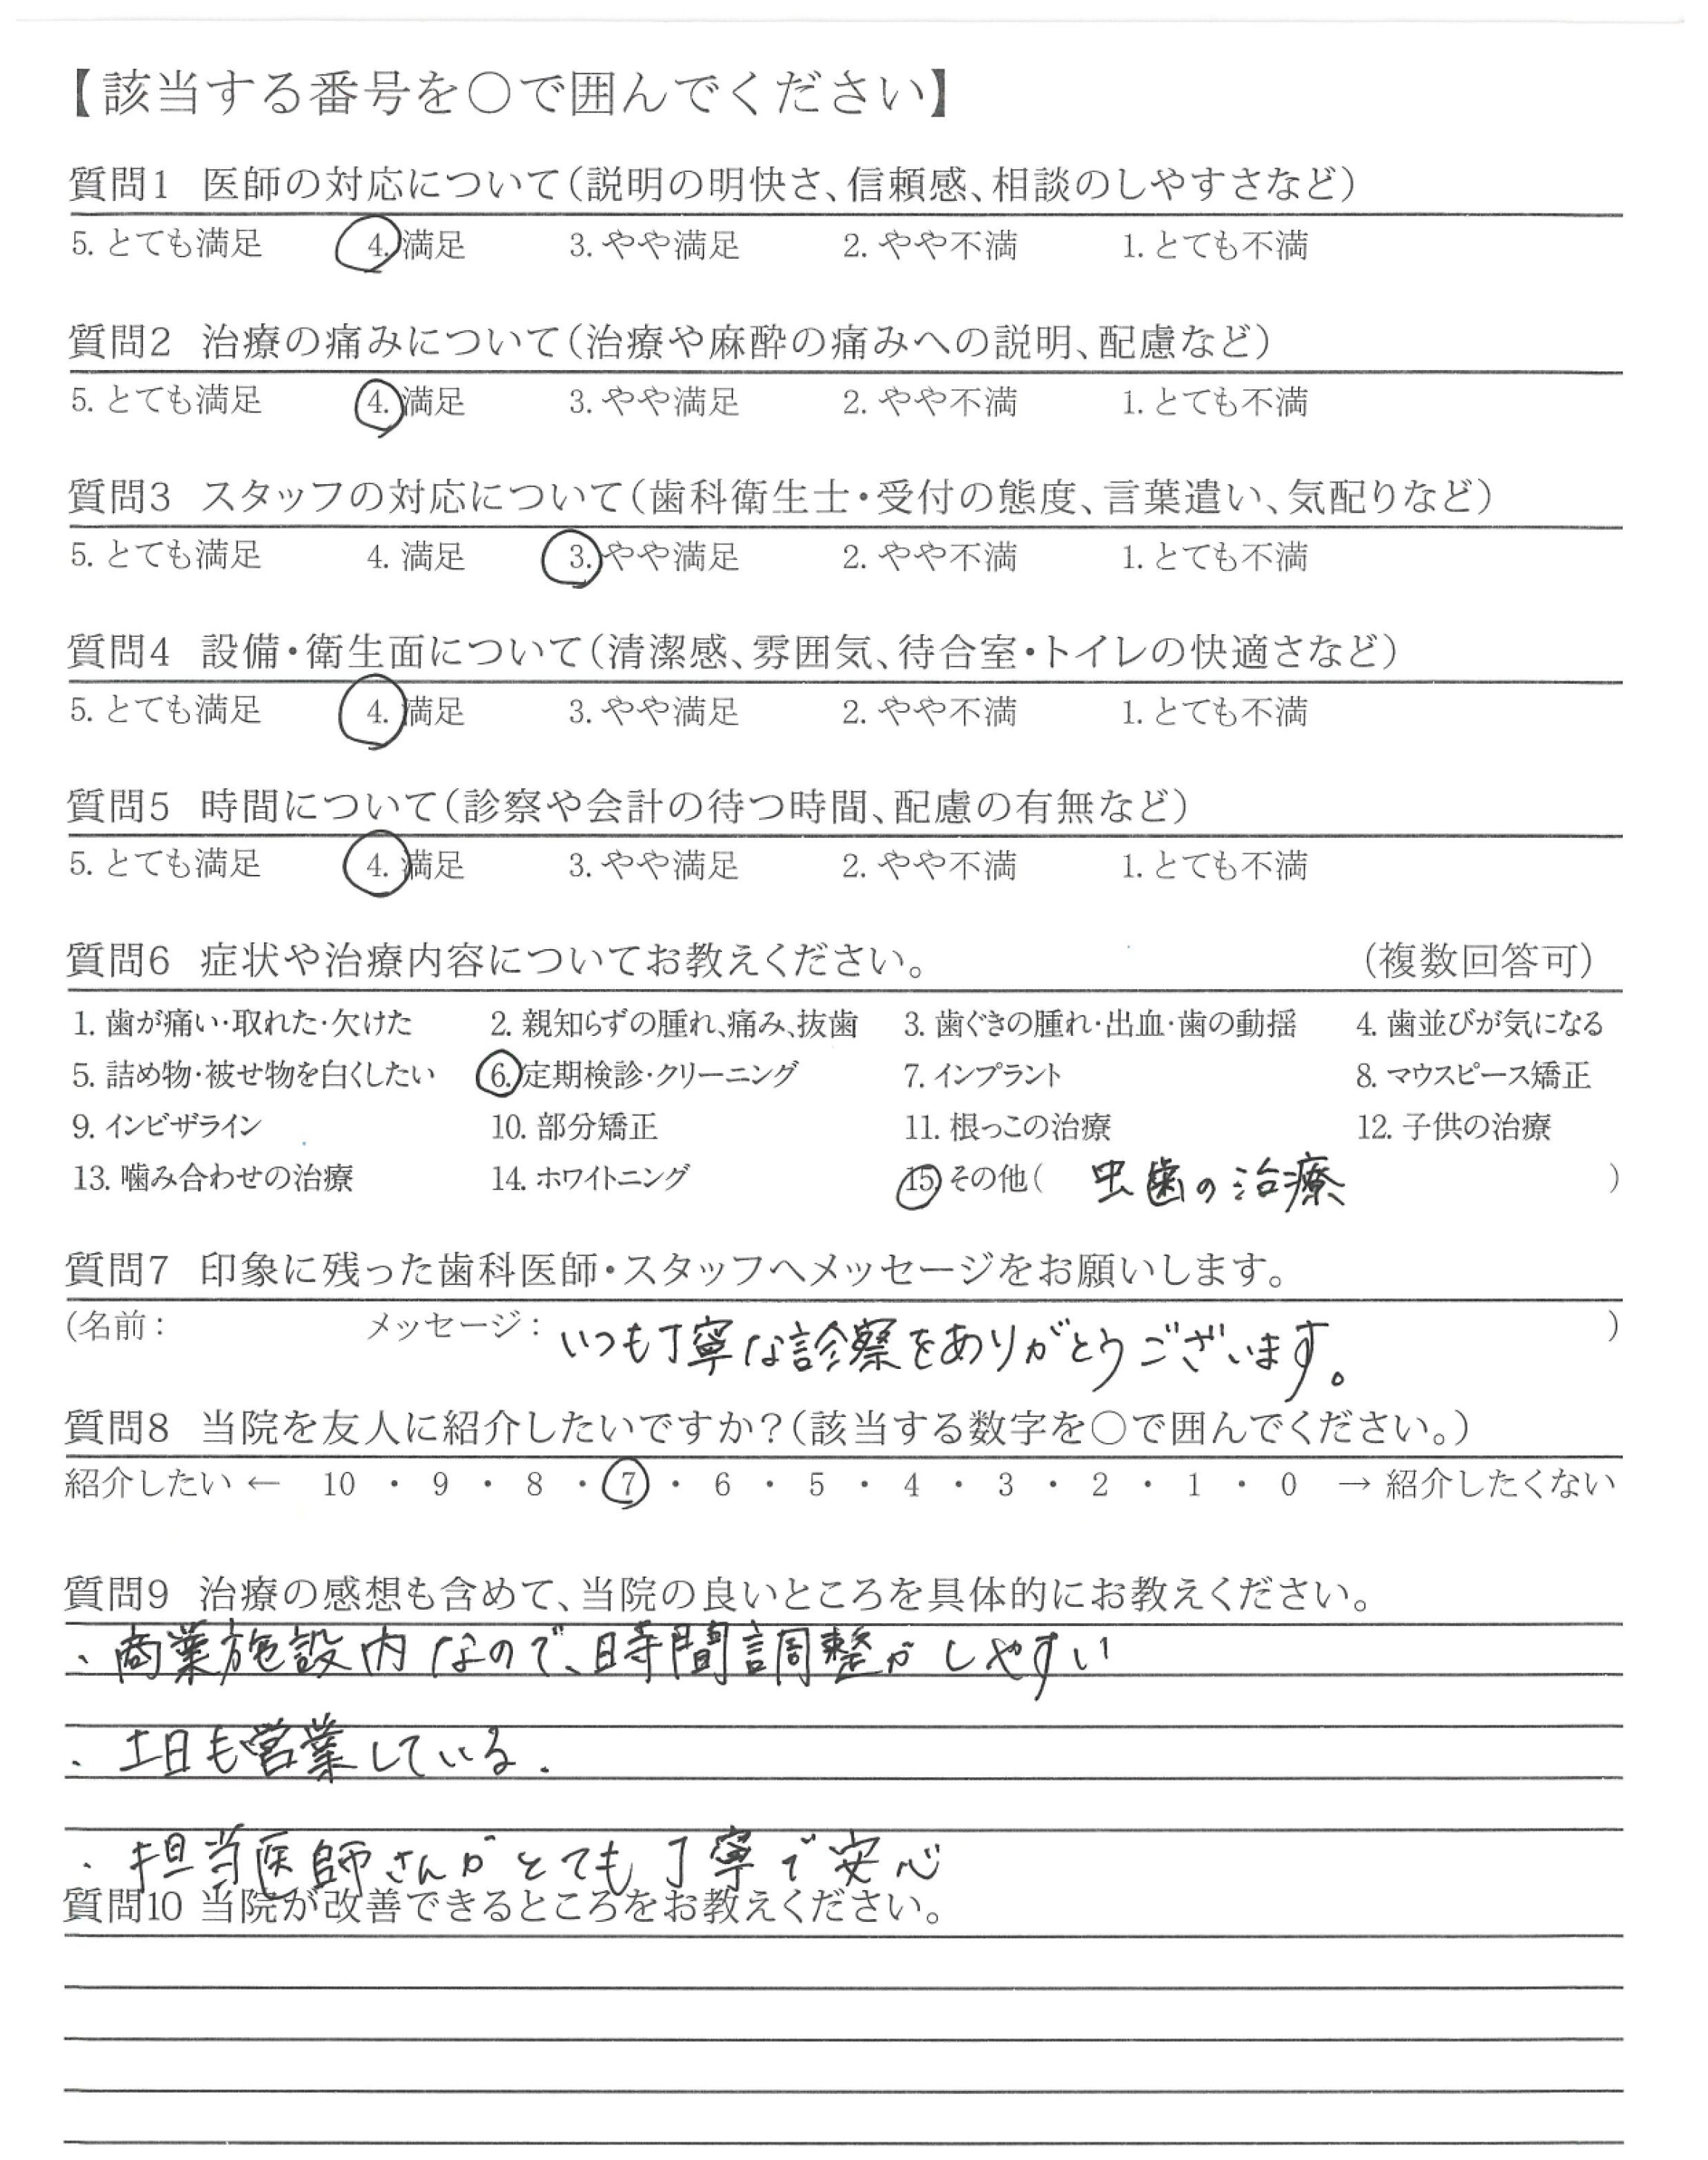 【該当する番号を○で囲んでください】
質問1 医師の対応について(説明の明快さ、信頼感、相談のしやすさなど)
5. とても満足 4. 満足 3. やや満足 2. やや不満 1. とても不満
質問2 治療の痛みについて(治療や麻酔の痛みへの説明、配慮など)
5. とても満足 4. 満足 3. やや満足 2. やや不満 1. とても不満
質問3 スタッフの対応について(歯科衛生士・受付の態度、言葉遣い、気配りなど)
5. とても満足 4. 満足 3. やや満足 2. やや不満 1. とても不満
質問4 設備・衛生面について(清潔感、雰囲気、待合室・トイレの快適さなど)
5. とても満足 4. 満足 3. やや満足 2. やや不満 1. とても不満
質問5 時間について(診察や会計の待つ時間、配慮の有無など)
5. とても満足 4. 満足 3. やや満足 2. やや不満 1. とても不満
質問6 症状や治療内容についてお教えください。 (複数回答可)
1. 歯が痛い・取れた・欠けた 2. 親知らずの腫れ、痛み、抜歯 3. 歯ぐきの腫れ・出血・歯の動揺 4. 歯並びが気になる
5. 詰め物・被せ物を白くしたい 6. 定期検診・クリーニング 7. インプラント 8. マウスピース矯正
9. インビザライン 10. 部分矯正 11. 根っこの治療 12. 子供の治療
13. 噛み合わせの治療 14. ホワイトニング 15. その他( 虫歯の治療 )
質問7 印象に残った歯科医師・スタッフへメッセージをお願いします。
(名前: メッセージ: いつも丁寧な診察をありがとうございます。 )
質問8 当院を友人に紹介したいですか?(該当する数字を○で囲んでください。)
紹介したい ← 10 ・ 9 ・ 8 ・ 7 ・ 6 ・ 5 ・ 4 ・ 3 ・ 2 ・ 1 ・ 0 → 紹介したくない
質問9 治療の感想も含めて、当院の良いところを具体的にお教えください。
・商業施設内なので、時間調整がしやすい
・土日も営業している.
・担当医師さんがとても丁寧で安心
質問10 当院が改善できるところをお教えください。